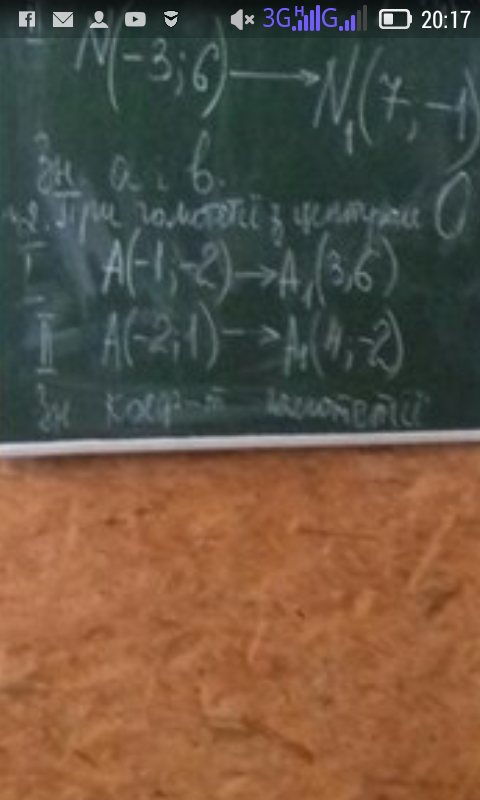 3G H G 20:17
II N(-3; 6) → N₁(7, -1)
Зн. a і b.
2. При гомотетії з центром O
I A(-1; -2) → A₁(3, 6)
II A(-2; 1) → A₁(4, -2)
Зн коеф-т гомотетії